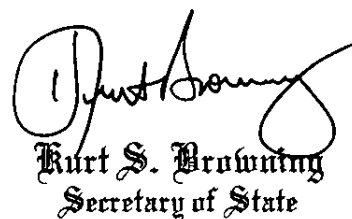 Kurt Browning
Kurt S. Browning
Secretary of State